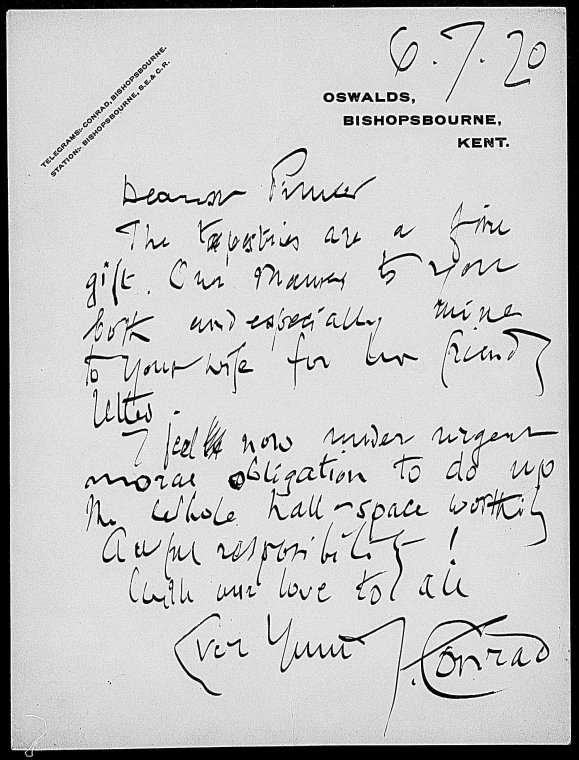 6.7.20
TELEGRAMS:- CONRAD, BISHOPSBOURNE.
STATION:- BISHOPSBOURNE, S.E. & C.R.
OSWALDS,
BISHOPSBOURNE,
KENT.
Dearest Pinker
The tapestries are a fine
gift. Our thanks to you
both and especially mine
to your wife for her friendly
letter.
I feel now under urgent
moral obligation to do up
the whole hall-space worthily
Awful responsibility!
With our love to all
Ever Yours
J. Conrad